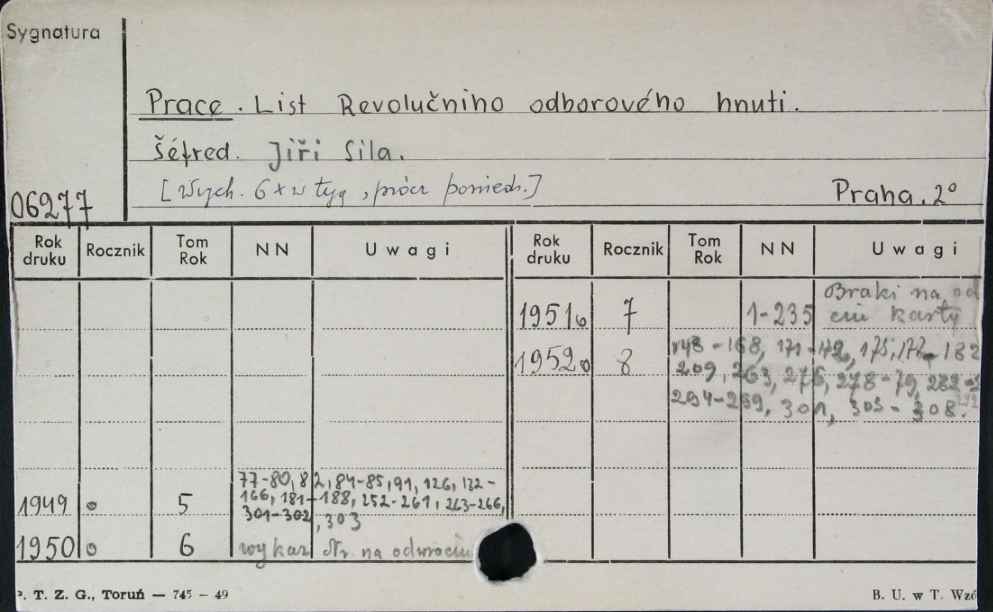 Sygnatura
Prace. List Revolučniho odborového hnuti.
Šéfred. Jiři Sila.
[Wych. 6 x w tyg, prócz poniedz.]
06277
Praha. 2°
Rok druku Rocznik Tom Rok NN Uwagi Rok druku Rocznik Tom Rok NN Uwagi
1951 7 1-235 Braki na od
karty
1952 8 148-168, 171-172, 175, 177-182
209, 263, 276, 278-79, 282-
294-299, 301, 303-308.
1949 5 77-80, 82, 84-85, 91, 126, 132-
166, 181-188, 252-261, 263-266,
301-302, 303
1950 6 wykaz Nr. na odwrociu
P. T. Z. G., Toruń — 745 - 49
B. U. w T. Wzó